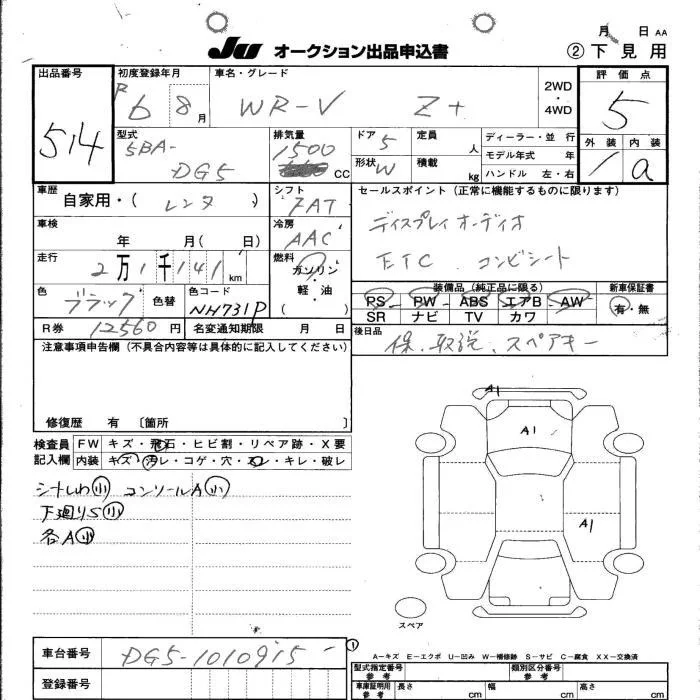 月 日 AA
JU オークション出品申込書
② 下見用
出品番号 514
初度登録年月 R6 8月
車名・グレード WR-V Z+
2WD・4WD
評価点 5
外装 1 内装 a
型式 5BA-DG5
排気量 1500 CC
ドア 5
形状 W
定員 人
積載 kg
ディーラー・並 行
モデル年式 年
ハンドル 左・右
車歴 自家用・( レンタ )
シフト FAT
セールスポイント (正常に機能するものに限ります)
ディスプレイオーディオ
ETC コンビシート
車検 年 月( 日)
冷房 AAC
走行 2万1千141km
燃料 ガソリン・軽・油 ( )
色 ブラック 色替
色コード NH731P
装備品 (純正品に限る)
PS PW ABS エアB AW
SR ナビ TV カワ
新車保証書
有・無
R券 12560円
名変通知期限 月 日
後日品
保、取説、スペアキー
注意事項申告欄 (不具合内容等は具体的に記入してください)
修復歴 有 〔箇所 〕
検査員記入欄
FW キズ・飛石・ヒビ割・リペア跡・X要
内装 キズ・汚レ・コゲ・穴・スレ・キレ・破レ
シートしわ小 コンソールA小
下廻りS小
各A小
A1
A1
A1
スペア
車台番号 DG5-1010915
登録番号
①
A－キズ E－エクボ U－凹み W－補修跡 S－サビ C－腐食 XX－交換済
型式指定番号 参考
類別区分番号 参考
車庫証明用 参考 長さ cm 幅 cm 高さ cm